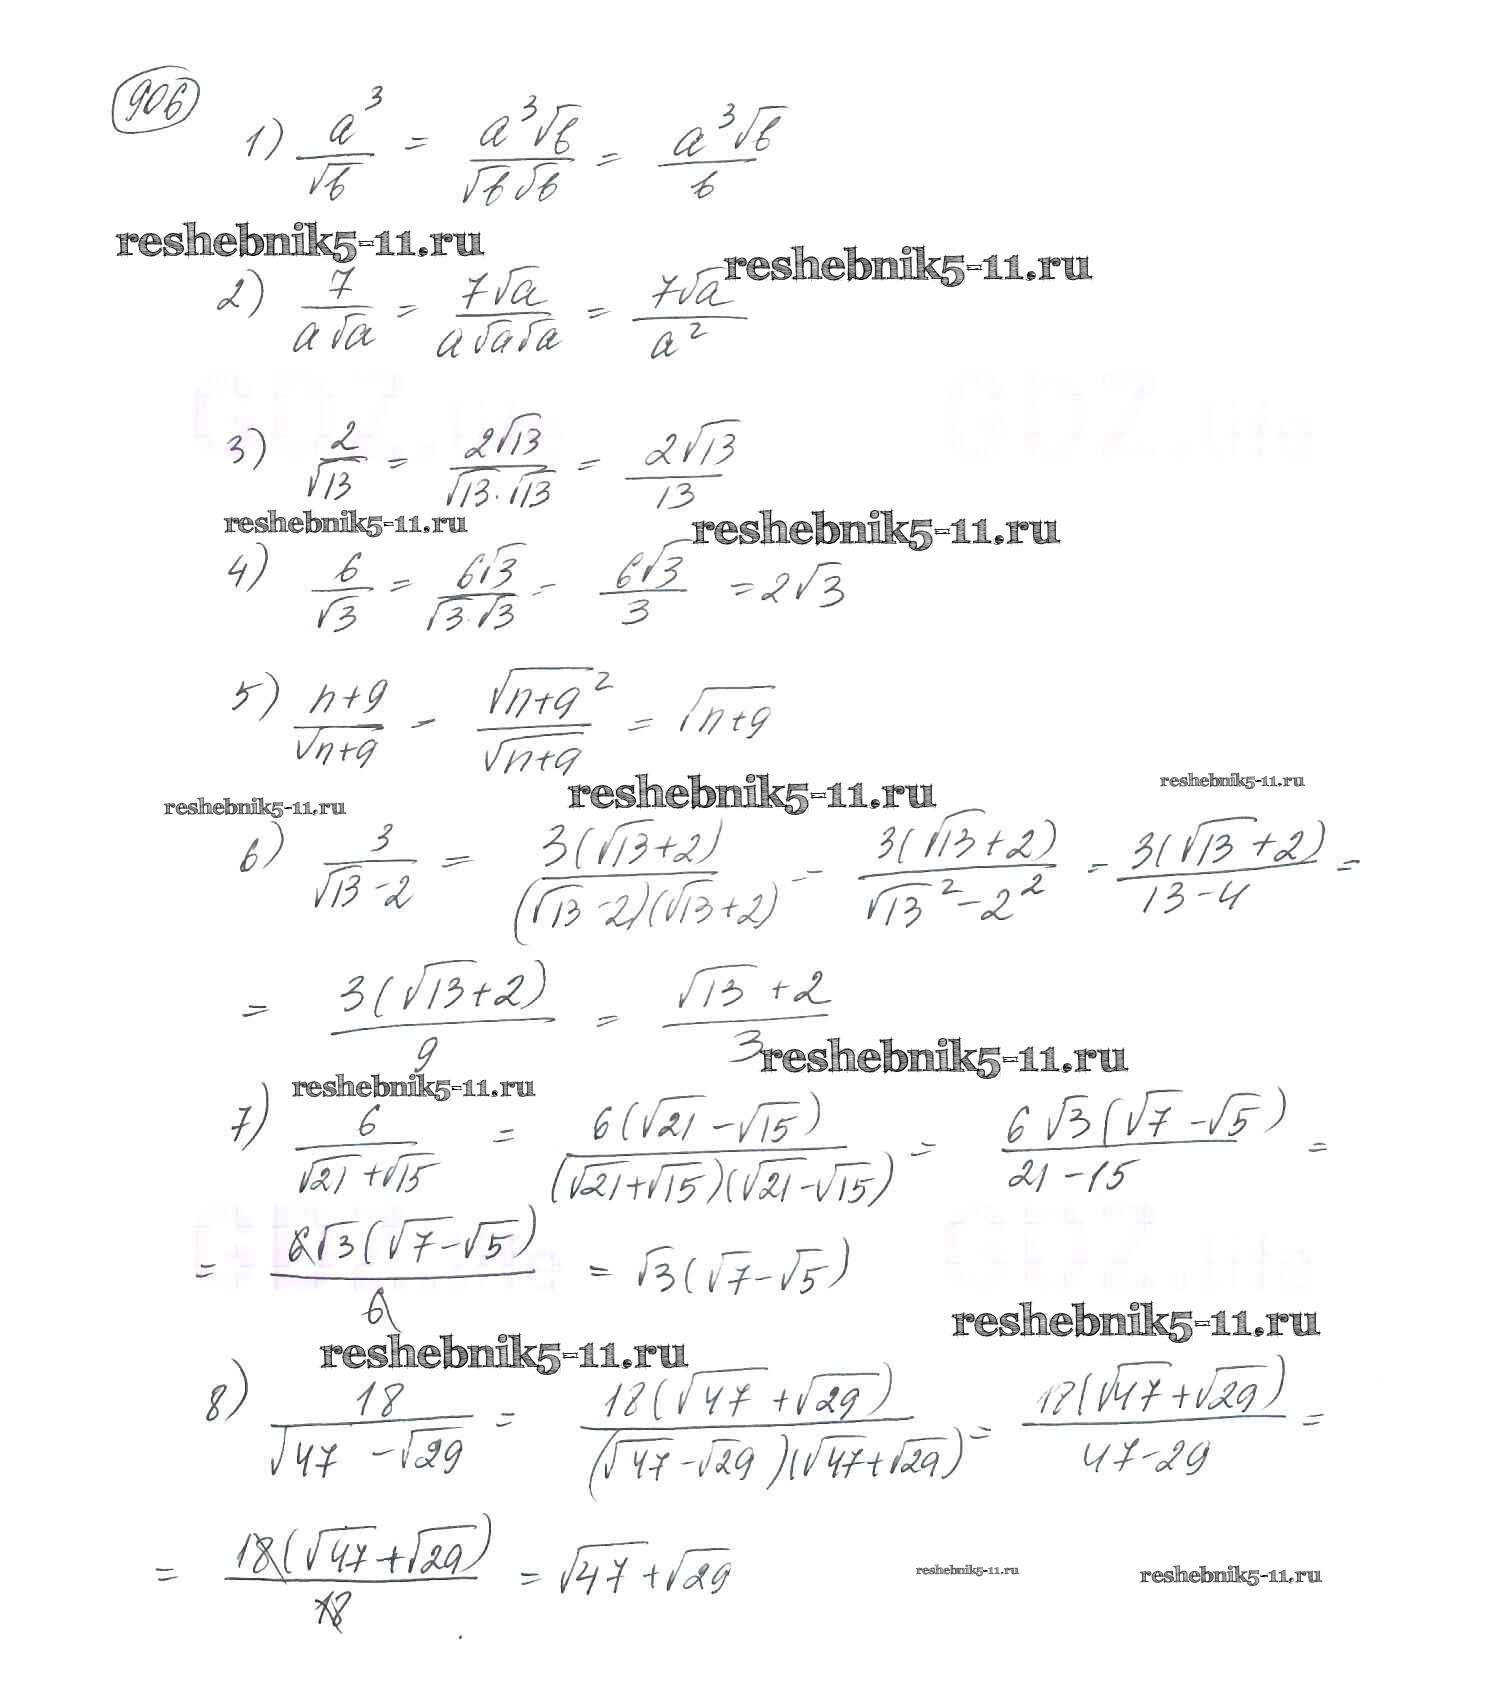 906
1) a³/√b = a³√b/√b√b = a³√b/b
reshebnik5-11.ru
reshebnik5-11.ru
2) 7/a√a = 7√a/a√a√a = 7√a/a²
GDZ.life GDZ.life
3) 2/√13 = 2√13/√13·√13 = 2√13/13
reshebnik5-11.ru reshebnik5-11.ru
4) 6/√3 = 6√3/√3·√3 = 6√3/3 = 2√3
5) n+9/√n+9 = √n+9²/√n+9 = √n+9
reshebnik5-11.ru reshebnik5-11.ru reshebnik5-11.ru
6) 3/√13-2 = 3(√13+2)/(√13-2)(√13+2) = 3(√13+2)/√13²-2² = 3(√13+2)/13-4 =
= 3(√13+2)/9 = √13+2/3
reshebnik5-11.ru
reshebnik5-11.ru
7) 6/√21+√15 = 6(√21-√15)/(√21+√15)(√21-√15) = 6√3(√7-√5)/21-15 =
GDZ.life GDZ.life
= 6√3(√7-√5)/6 = √3(√7-√5)
reshebnik5-11.ru
reshebnik5-11.ru
8) 18/√47-√29 = 18(√47+√29)/(√47-√29)(√47+√29) = 18(√47+√29)/47-29 =
= 18(√47+√29)/18 = √47+√29
reshebnik5-11.ru reshebnik5-11.ru